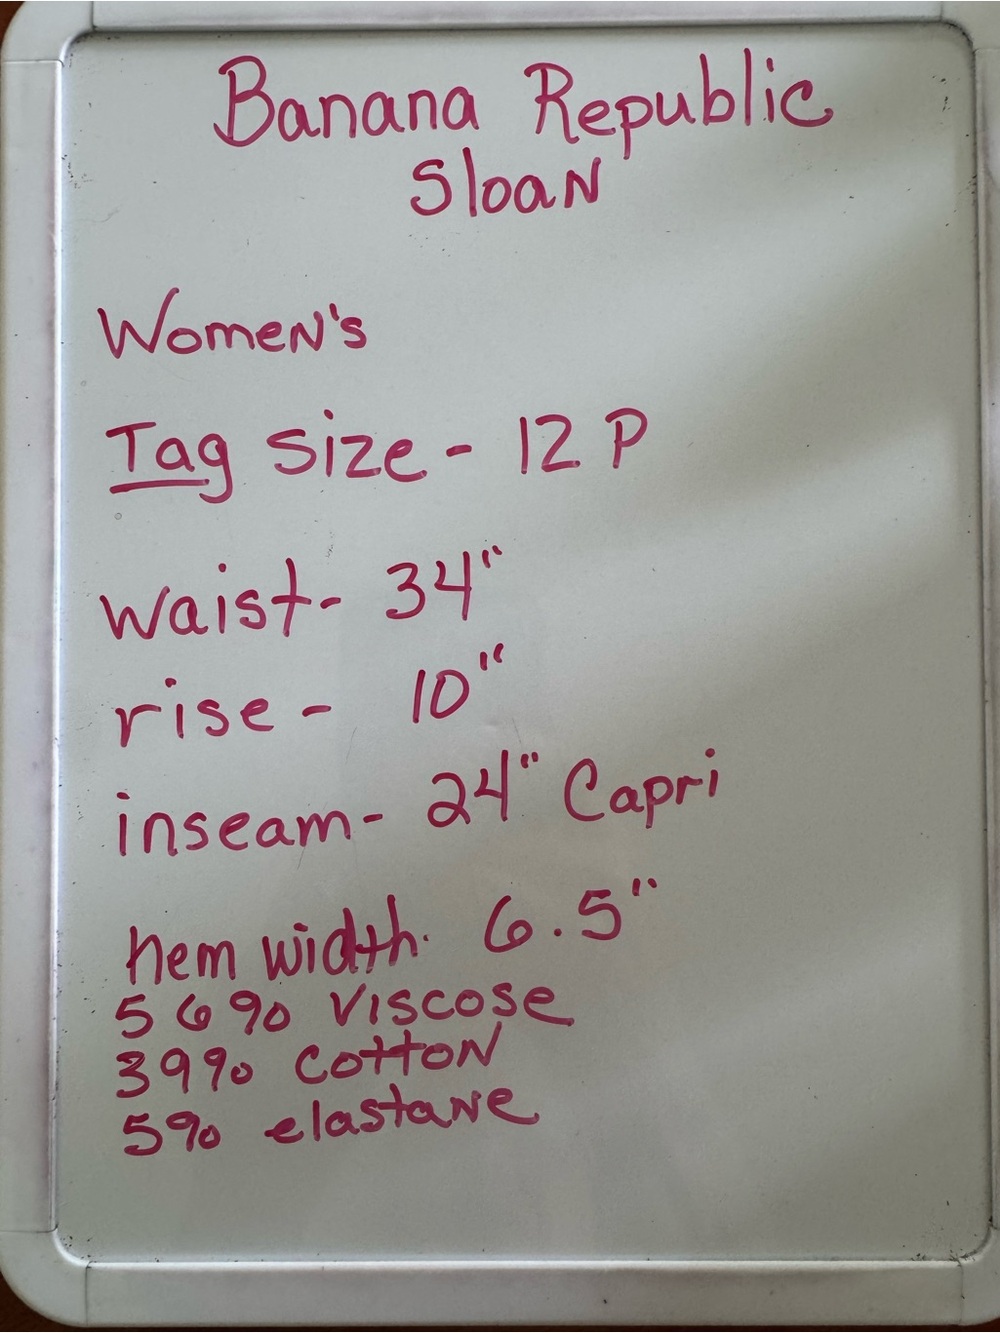 Banana Republic
Sloan
Women's
Tag Size - 12 P
waist- 34"
rise - 10"
inseam- 24" Capri
hem width- 6.5"
56% Viscose
39% cotton
5% elastane